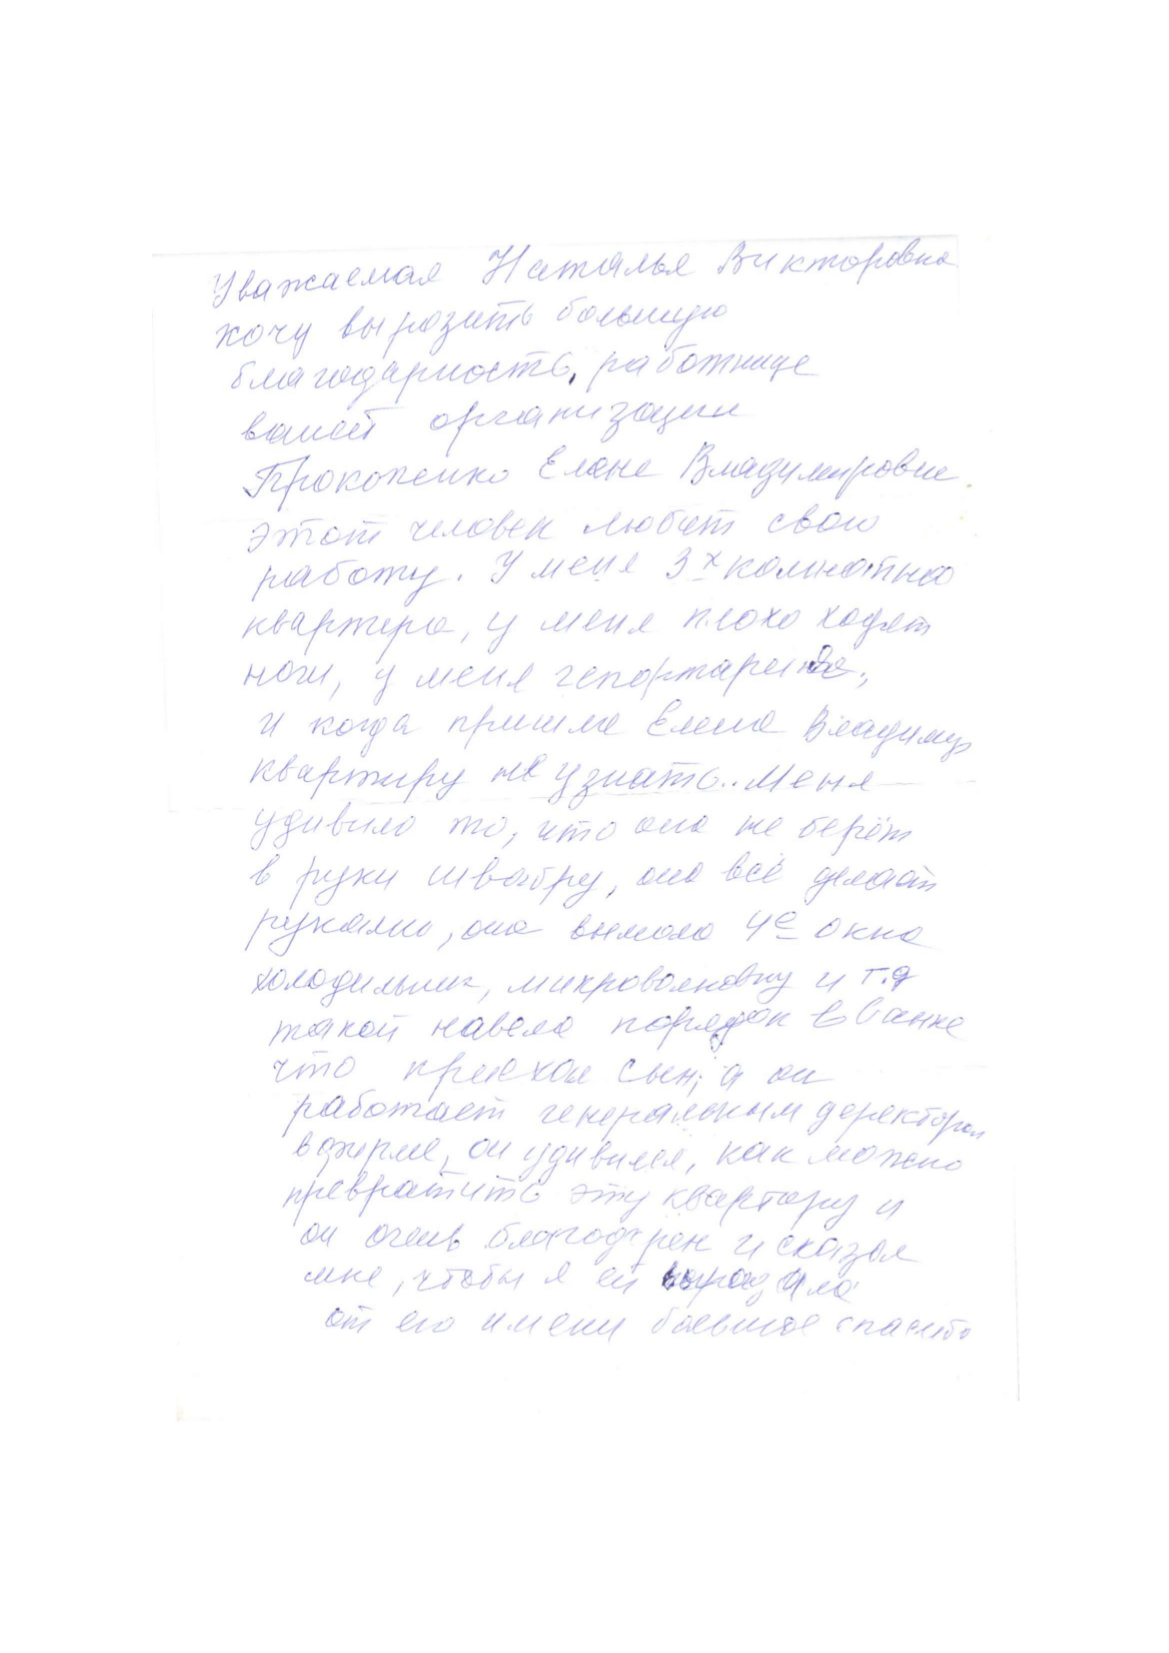 Уважаемая Наталья Викторовна
хочу вырозить большую
благодарность, работнице
вашей организации
Прокопенко Елене Владимировне
этот человек любит свою
работу. У меня 3х комнатная
квартира, у меня плохо ходят
ноги, у меня
и когда пришла Елена Владимир
квартиру не узнать.. Меня
удивило то, что она не берёт
в руки швабру, она всё делает
руками, она вымола 4е окна
холодильник, микроволновку и т.д
такой навела порядок в ванне
что приехал сын, а он
работает генеральным деректором
в фирме, он удивился, как можно
превратить эту квартиру и
он очень благодарен и сказал
мне, чтобы я ей
от его имени большое спасибо